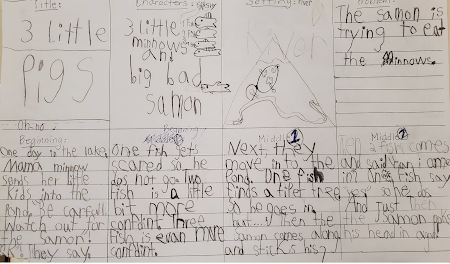 Title:
3 little
Pigs
Characters:
3 little
minnows
and
big bad
samon
Setting:
Problem:
The samon is
trying to eat
the minnows.
Oh no
Beginning:
One day in the lake
Mama minnow
sends her litle
Kids into the
Pond. Be carfull
Watch out for
the samon!
OK. they say.
One fish gets
scared so he
dos not go. Two
fish is a little
bit more
confdint. Three
fish is evan more
confdint.
Middle 1
Next they
move into the
Pond. One fish
finds a
so he goes in
but...! then the
samon comes along
and sticks his
Middle 2
fish comes
and said can i come
in? One fish say
yes so he dos
And just then
the samon puts
his head in and